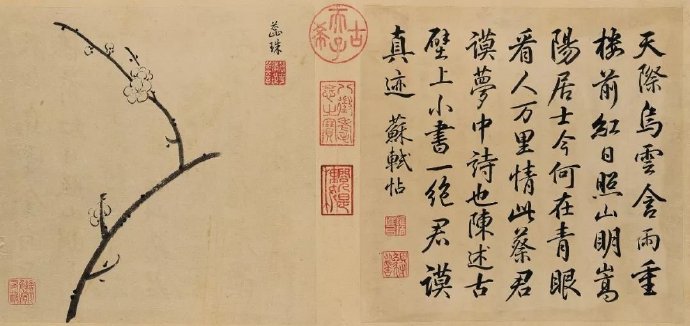 天際烏雲含雨重
樓前紅日照山明嵩
陽居士今何在青眼
看人万里情此蔡君
謨夢中詩也陳述古
壁上小書一絕君謨
真迹 蘇軾帖
古希天子
八徵耄念之寶
蕊珠